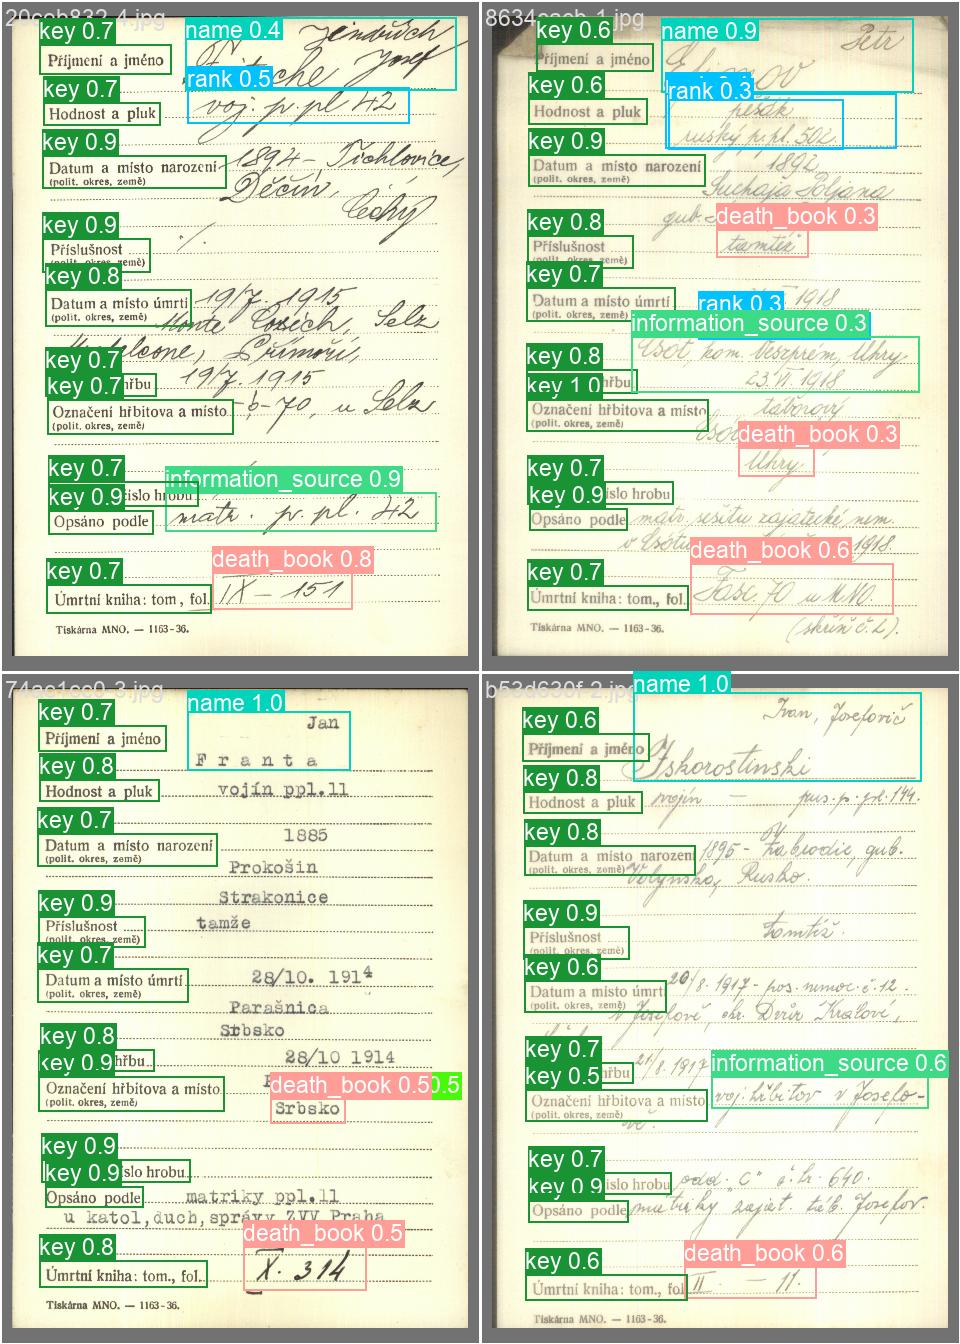 20eeb832-4.jpg
key 0.7
name 0.4
Jindřich
Josef
Příjmení a jméno
rank 0.5
key 0.7
voj. p. pl 42
Hodnost a pluk
key 0.9
1894 - Tichlovice,
Datum a místo narození
(polit. okres, země)
Děčín,
Čechy
key 0.9
Příslušnost
(polit. okres, země)
key 0.8
Datum a místo úmrtí
(polit. okres, země)
19/7. 1915
Monte Cosich, Selz
Přímoří
key 0.7
key 0.7
hřbu
19/7. 1915
Označení hřbitova a místo
(polit. okres, země)
-b-70, u Selz
key 0.7
information_source 0.9
key 0.9
íslo hrobu
Opsáno podle
matr. p. pl. 42
death_book 0.8
key 0.7
Úmrtní kniha: tom, fol.
IX - 151
Tiskárna MNO. — 1163-36.
key 0.6
name 0.9
Petr
Příjmení a jméno
rank 0.3
key 0.6
pěšák
Hodnost a pluk
ruský p. pl. 502
key 0.9
1892
Datum a místo narození
(polit. okres, země)
Suchaja Poljana
gub.
death_book 0.3
key 0.8
Příslušnost
(polit. okres, země)
tamtéž
key 0.7
rank 0.3
Datum a místo úmrtí
(polit. okres, země)
1918
information_source 0.3
key 0.8
Csót, kom. Veszprém, Uhry
key 1.0
hřbu
23.VI.1918
Označení hřbitova a místo
(polit. okres, země)
táborový
death_book 0.3
Uhry
key 0.7
key 0.9
íslo hrobu
Opsáno podle
matr. sešitu zajatecké nem.
v Csótu
1918.
death_book 0.6
key 0.7
Úmrtní kniha: tom., fol.
Fasc. 70 u MNO.
(skříň č. 2).
Tiskárna MNO. — 1163-36.
name 1.0
key 0.7
Jan
Příjmení a jméno
Franta
key 0.8
Hodnost a pluk
vojín ppl.11
key 0.7
1885
Datum a místo narození
(polit. okres, země)
Prokošín
Strakonice
key 0.9
Příslušnost
(polit. okres, země)
tamže
key 0.7
Datum a místo úmrtí
(polit. okres, země)
28/10. 1914
Parašnica
Srbsko
key 0.8
key 0.9
hřbu
28/10 1914
Označení hřbitova a místo
(polit. okres, země)
death_book 0.5
0.5
Srbsko
key 0.9
key 0.9
íslo hrobu
Opsáno podle
matriky ppl.11
u katol,duch,správy ZVV Praha
death_book 0.5
key 0.8
Úmrtní kniha: tom., fol.
X. 314
Tiskárna MNO. — 1163-36.
b53d630f-2.jpg
name 1.0
key 0.6
Ivan, Josefovič
Příjmení a jméno
Iskorostinski
key 0.8
Hodnost a pluk
vojín — rus. p. pl. 144.
key 0.8
Datum a místo narození
(polit. okres, země)
1895 - Zabrodie, gub.
Volynska, Rusko.
key 0.9
Příslušnost
(polit. okres, země)
tamtéž.
key 0.6
Datum a místo úmrtí
(polit. okres, země)
20/8. 1917 - pos. nemoc. č. 12.
v Josefově, okr. Dvůr Králové,
key 0.7
key 0.5
hřbu
21/8. 1917
information_source 0.6
Označení hřbitova a místo
(polit. okres, země)
voj. hřbitov v Josefo-
vě.
key 0.7
key 0.9
íslo hrobu
odd. "C" č. hr. 640.
Opsáno podle
matriky zajat. táb. Josefov.
death_book 0.6
key 0.6
Úmrtní kniha: tom., fol
II. — 11.
Tiskárna MNO. — 1163-36.